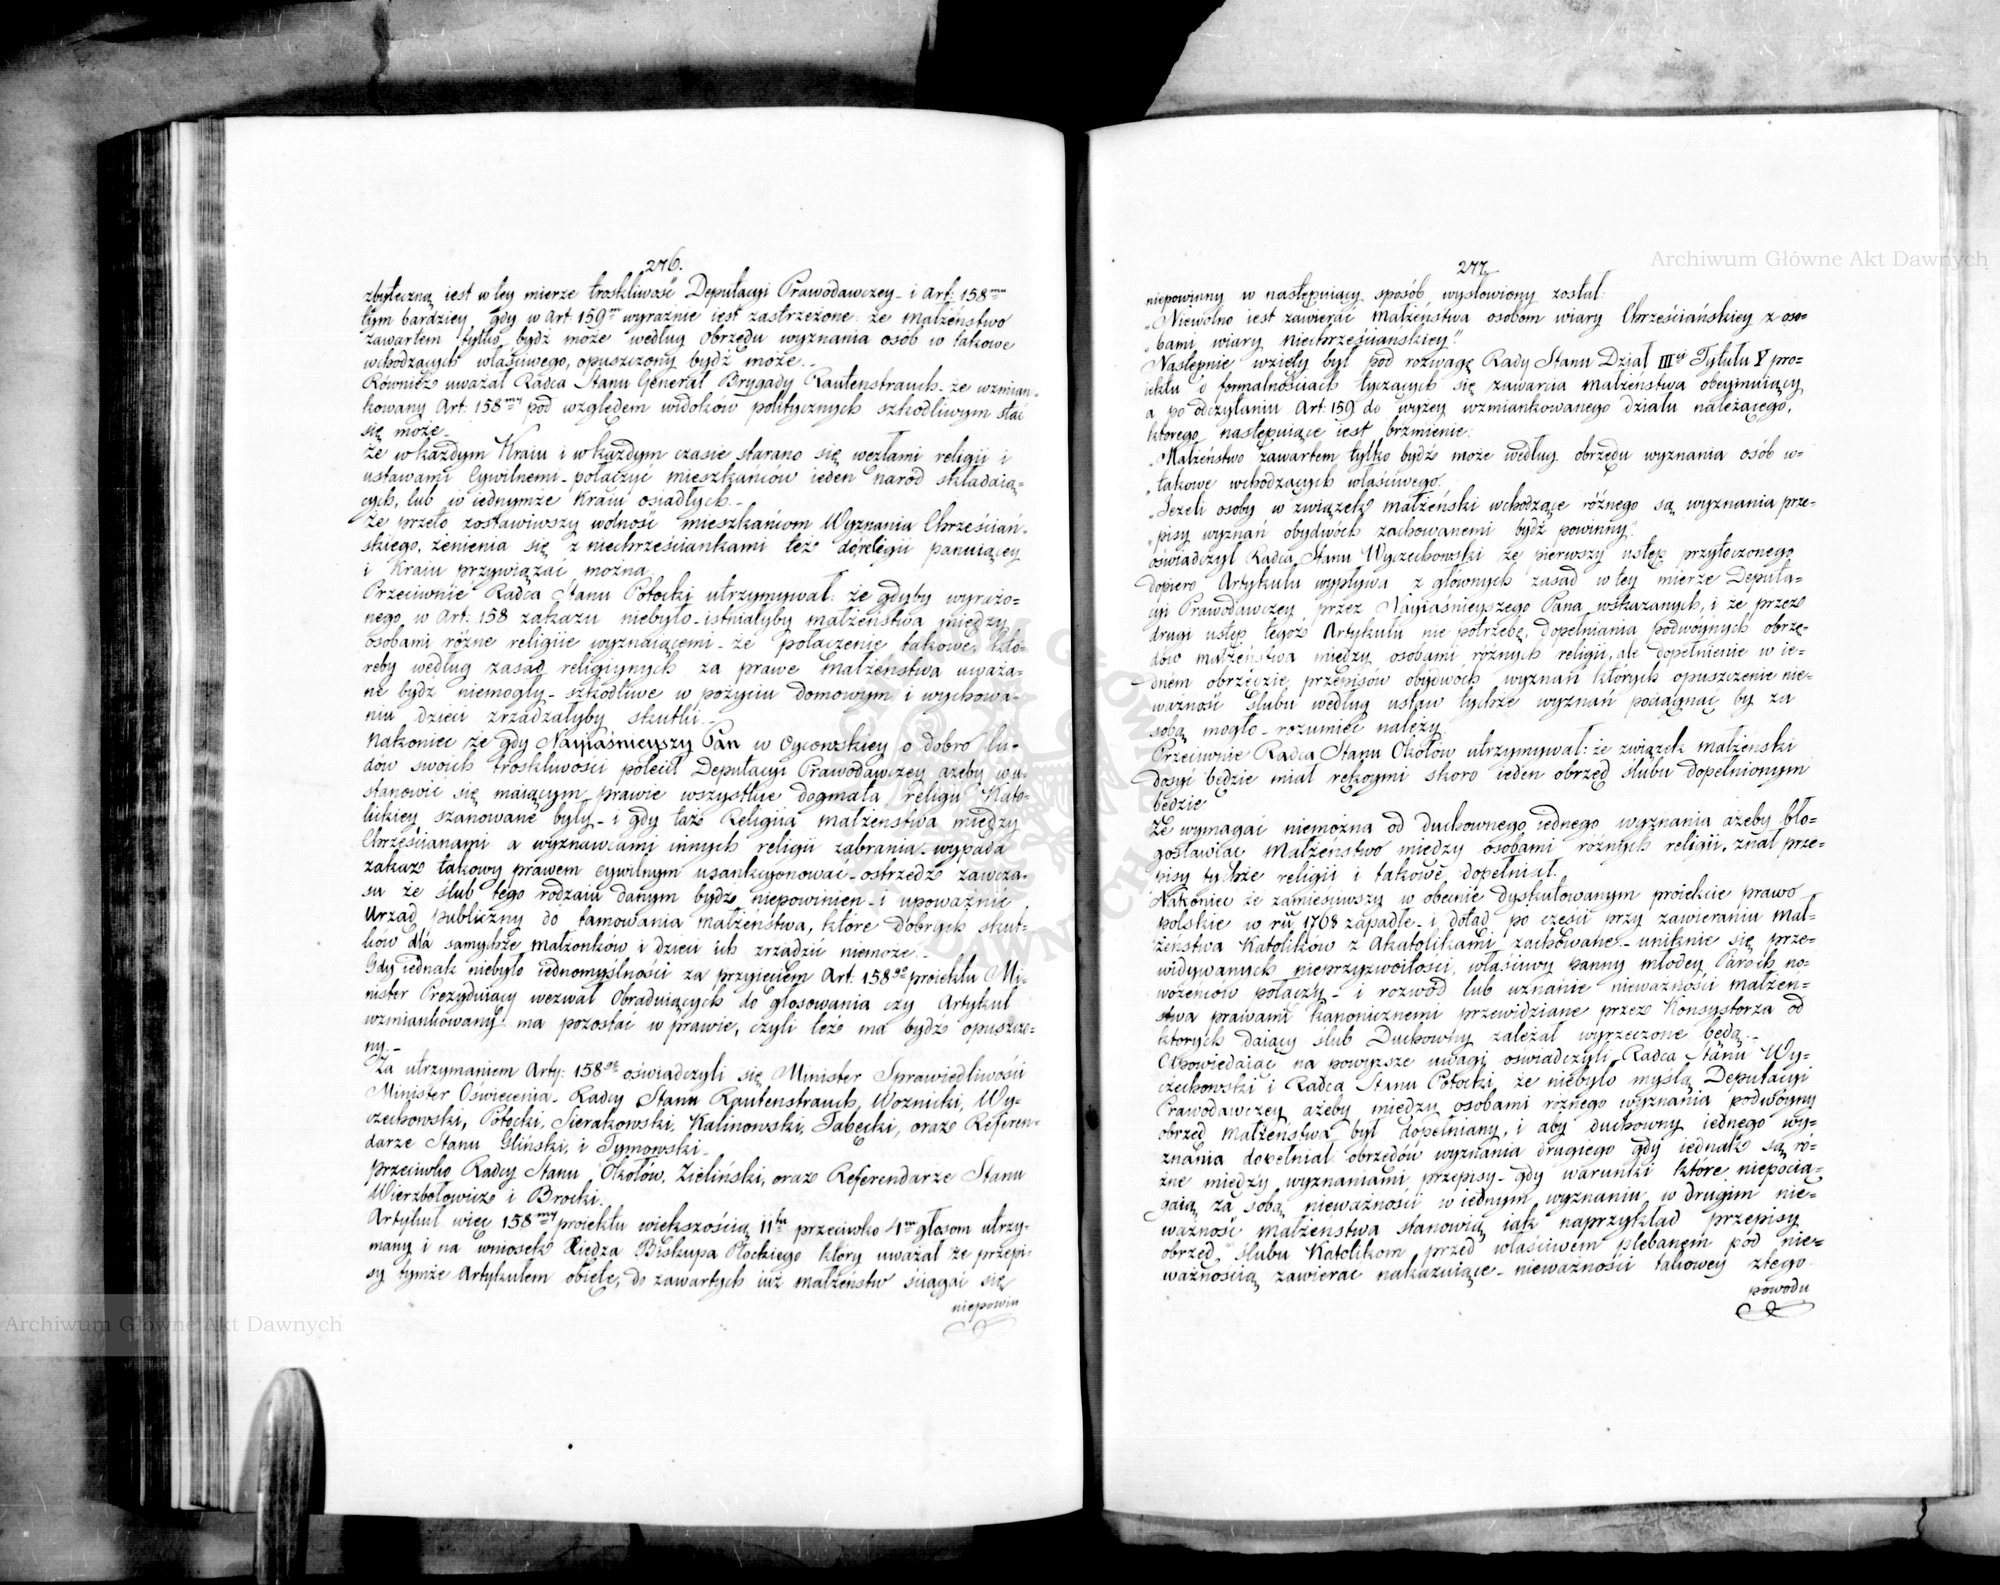 276.
zbyteczną iest w tey mierze troskliwość Deputacyi Prawodawczey - i Art: 158my
tym bardziey gdy w Art 159m wyraźnie iest zastrzeżone: że Małżeństwo
zawartem tylko bydź może według Obrzędu wyznania osób w takowe
wchodzących właściwego, opuszczony bydź może. -
Również uważał Radca Stanu Generał Brygady Rautenstrauch - że wzmian-
kowany Art: 158my pod względem widoków politycznych szkodliwym stać
się może -
Że w każdym Kraiu i w każdym czasie starano się węzłami religii i
ustawami Cywilnemi - połączyć mieszkańców ieden naród składaią-
cych, lub w iednymże Kraiu osiadłych. -
Że przeto zostawiwszy wolność mieszkańcom Wyznania Chrześciań-
skiego, żenienia się z niechrześciankami też do religii panuiącey
i Kraiu przywiązać można.
Przeciwnie Radca Stanu Potocki utrzymywał: że gdyby wyrażo-
nego w Art: 158 zakazu niebyło - istniałyby małżeństwa między
osobami różne religiie wyznaiącemi - że połączenie takowe, któ-
reby według zasad religiynych za prawe Małżeństwa uważa-
ne bydź niemogły - szkodliwe w pożyciu domowym i wychowa-
niu dzieci zrządzałyby skutki. -
Nakoniec że gdy Nayiaśnieyszy Pan w Oycowskiey o dobro lu-
dów swoich troskliwości polecił Deputacyi Prawodawczey ażeby w u-
stanowić się maiącym prawie wszystkie dogmata religii Kato-
lickiey szanowane były - i gdy taż Religiia małżeństwa między
Chrześcianami a wyznawcami innych religii zabrania - wypada
zakaz takowy prawem cywilnym usankcyonować - ostrzedz zawcza-
su że ślub tego rodzaiu danym bydź niepowinien - i upoważnić
Urząd publiczny do tamowania Małżeństwa, które dobrych skut-
ków dla samychże Małżonków i dzieci ich zrządzić niemoże. -
Gdy iednak niebyło iednomyślności za przyięciem Art. 158go proiektu Mi-
nister Prezyduiący wezwał Obraduiących do głosowania czy Artykuł
wzmiankowany ma pozostać w prawie, czyli też ma bydź opuszczo-
ny. -
Za utrzymaniem Arty: 158go oświadczyli się Minister Sprawiedliwości
Minister Oświecenia - Radcy Stanu Rautenstrauch, Woznicki, Wy-
czechowski, Potocki, Sierakowski, Kalinowski, Tabęcki, oraz Referen-
darze Stanu Gliński, i Tymowski -
przeciwko Radcy Stanu Okołow, Zieliński, oraz Referendarze Stanu
Wierzbołowicz i Brocki.
Artykuł więc 158my proiektu większością 11tu przeciwko 4m głosom utrzy-
many i na wniosek Xiędza Biskupa Płockiego który uważał że przepi-
sy tymże Artykułem obięte, do zawartych iuż małżeństw ściągać się
niepowin
277.
niepowinny w następuiący sposób wysłowiony został:
„Niewolno iest zawierać Małżeństwa osobom wiary Chrześciańskiey z oso-
„bami wiary niechrześciańskiey."
Następnie wzięty był pod rozwagę Rady Stanu Dział IIIci Tytułu V pro-
iektu o formalnościach tyczących się zawarcia Małżeństwa obeymuiący,
a po odczytaniu Art: 159 do wyżey wzmiankowanego działu należącego,
którego następuiące iest brzmienie:
„Małżeństwo zawartem tylko bydź może według obrzędu wyznania osób w-
„takowe wchodzących właściwego.
„Jeżeli osoby w związek małżeński wchodzące różnego są wyznania prze-
„pisy wyznań obydwóch zachowanemi bydź powinny."
Oświadczył Radca Stanu Wyczechowski że pierwszy ustęp przytoczonego
dopiero Artykułu wypływa z głównych zasad w tey mierze Deputa-
cyi Prawodawczey przez Nayiaśnieyszego Pana wskazanych, i że przez
drugi ustęp tegoż Artykułu nie potrzebę, dopełniania podwóynych obrzę-
dów małżeństwa między osobami różnych religii, ale dopełnienie w ie-
dnem obrzędzie przepisów obydwóch wyznań których opuszczenie nie-
ważność ślubu według ustaw tychże wyznań pociągnąć by za
sobą mogło - rozumieć należy
Przeciwnie Radca Stanu Okołow utrzymywał: że związek małżeński
dosyć będzie miał rękoymi skoro ieden obrzęd ślubu dopełnionym
będzie
Że wymagać niemożna od duchownego iednego wyznania ażeby bło-
gosławiąc Małżeństwo między osobami różnych religii, znał prze-
pisy tychże religii i takowe dopełniał.
Nakoniec że zamieściwszy w obecnie dyskutowanym proiekcie prawo
polskie w ru 1768 zapadłe - i dotąd po części przy zawieraniu Mał-
żeństwa Katolików z Akatolikami zachowane - uniknie się prze-
widywanych nieprzyzwoitości, właściwy panny młodey Paroch no-
wożeńców połączy - i rozwód lub uznanie nieważności małżeń-
stwa prawami kanonicznemi przewidziane przez Konsystorza od
których daiący ślub Duchowny zależał wyrzeczone będą. -
Odpowiedaiąc na powyższe uwagi oświadczyli Radca Stanu Wy-
czechowski i Radca Stanu Potocki, że niebyło myślą Deputacyi
Prawodawczey ażeby między osobami różnego wyznania podwóyny
obrzęd Małżeństwa był dopełniany, i aby duchowny iednego wy-
znania dopełniał obrzędów wyznania drugiego gdy iednak są ró-
żne między wyznaniami przepisy - gdy warunki które niepocią-
gaią za sobą nieważności w iednym wyznaniu w drugim nie-
ważność Małżeństwa stanowią iak naprzykład przepisy
obrzęd ślubu Katolikom przed właściwem plebanem pod nie-
ważnością zawierać nakazuiące - nieważności takowey z tego
powodu
Archiwum Główne Akt Dawnych
Archiwum Główne Akt Dawnych